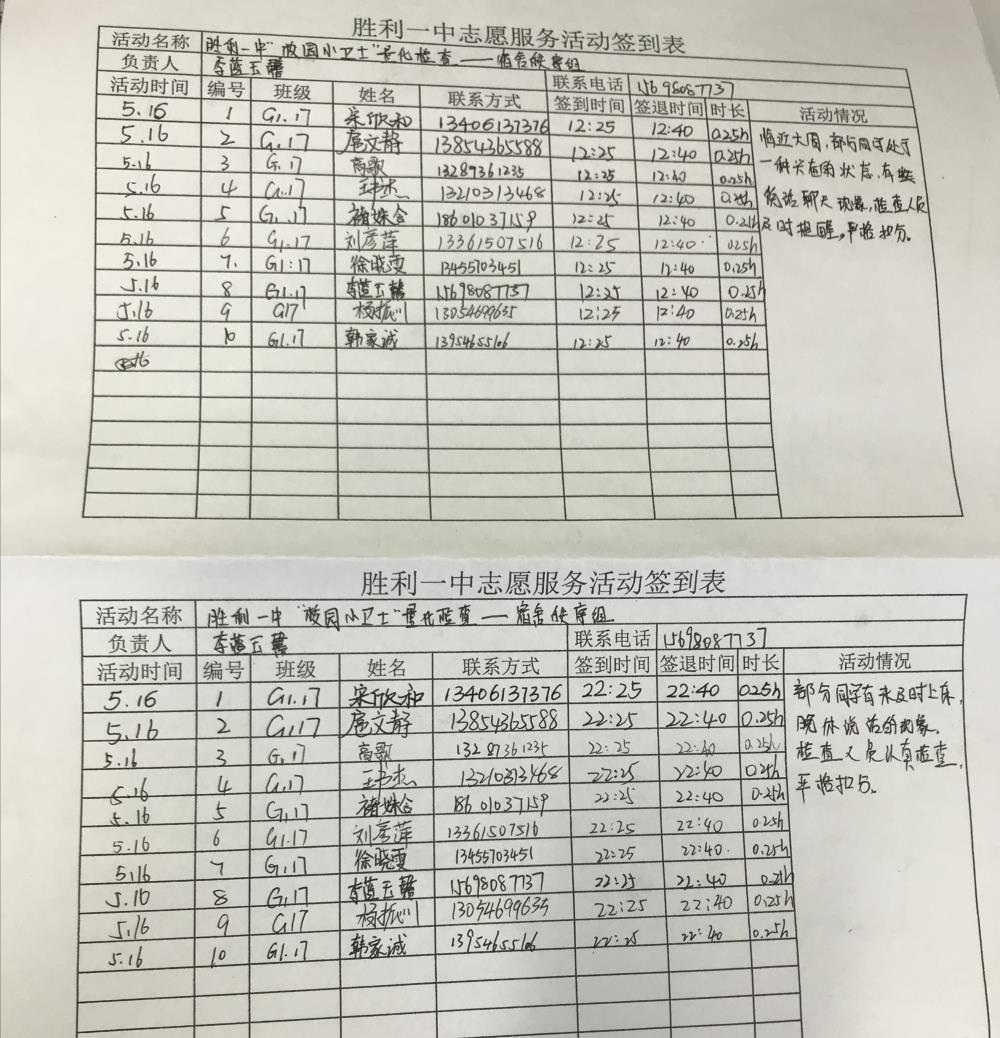 胜利一中志愿服务活动签到表
活动名称 胜利一中“校园小卫士”量化检查——宿舍秩序组
负责人 李蓝玉馨 联系电话 15698087737
活动时间 编号 班级 姓名 联系方式 签到时间 签退时间 时长 活动情况
5.16 1 G1.17 宋欣和 13406137376 12:25 12:40 0.25h 临近大周,部分同学处于
5.16 2 G1.17 扈文静 13854365588 12:25 12:40 0.25h 一种兴奋的状态,有些
5.16 3 G.17 高歌 13289361235 12:25 12:40 0.25h
5.16 4 G1.17 12:25 12:40 0.25h 说话聊天现象,检查人员
5.16 5 G1.17 褚姝含 18601037159 12:25 12:40 0.25h 及时提醒,严格扣分。
5.16 6 G1.17 刘彦萍 13361507516 12:25 12:40 0.25h
5.16 7. G1:17 徐晓雯 13455703451 12:25 12:40 0.25h
5.16 8 G1.17 李蓝玉馨 15698087737 12:25 12:40 0.25h
5.16 9 G17 杨振川 13054699635 12:25 12:40 0.25h
5.16 10 G1.17 韩家诚 13954655106 12:25 12:40 0.25h
胜利一中志愿服务活动签到表
活动名称 胜利一中“校园小卫士”量化检查——宿舍秩序组
负责人 李蓝玉馨 联系电话 15698087737
活动时间 编号 班级 姓名 联系方式 签到时间 签退时间 时长 活动情况
5.16 1 G1.17 宋欣和 13406137376 22:25 22:40 0.25h 部分同学有未及时上床,
5.16 2 G1.17 扈文静 13854365588 22:25 22:40 0.25h 晚休说话的现象,
5.16 3 G.17 高歌 13289361235 22:25 22:40 0.25h 检查人员认真检查,
5.16 4 G.17 13210313468 22:25 22:40 0.25h 严格扣分。
5.16 5 G1.17 褚姝含 18601037159 22:25 22:40 0.25h
5.16 6 G1.17 刘彦萍 13361507516 22:25 22:40 0.25h
5.16 7 G1.17 徐晓雯 13455703451 22:25 22:40. 0.25h
5.16 8 G1.17 李蓝玉馨 15698087737 22:25 22:40 0.25h
5.16 9 G17 杨振川 13054699635 22:25 22:40 0.25h
5.16 10 G1.17 韩家诚 13954655106 22:25 22:40 0.25h